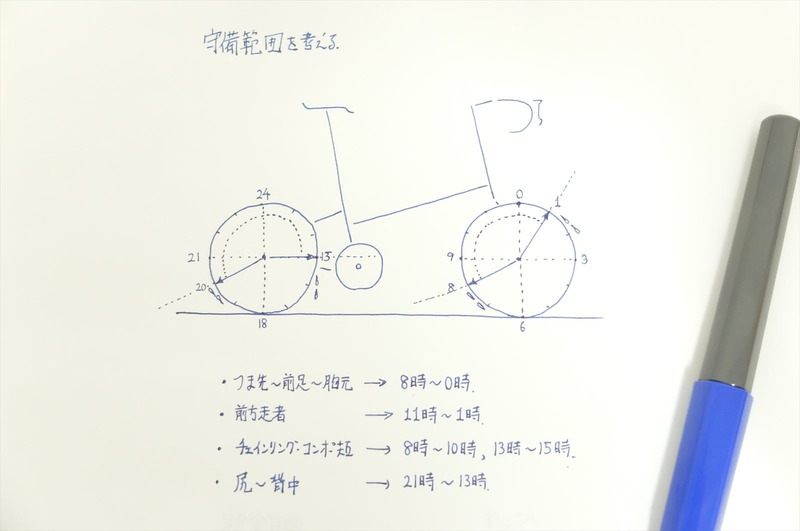 守備範囲を考える.
24
0
1
21
13
9
3
20
8
18
6
・つま先〜前足〜胸元 → 8時〜0時.
・前方走者 → 11時〜1時.
・チェインリング・コンポ類 → 8時〜10時, 13時〜15時.
・尻〜背中 → 21時〜13時.